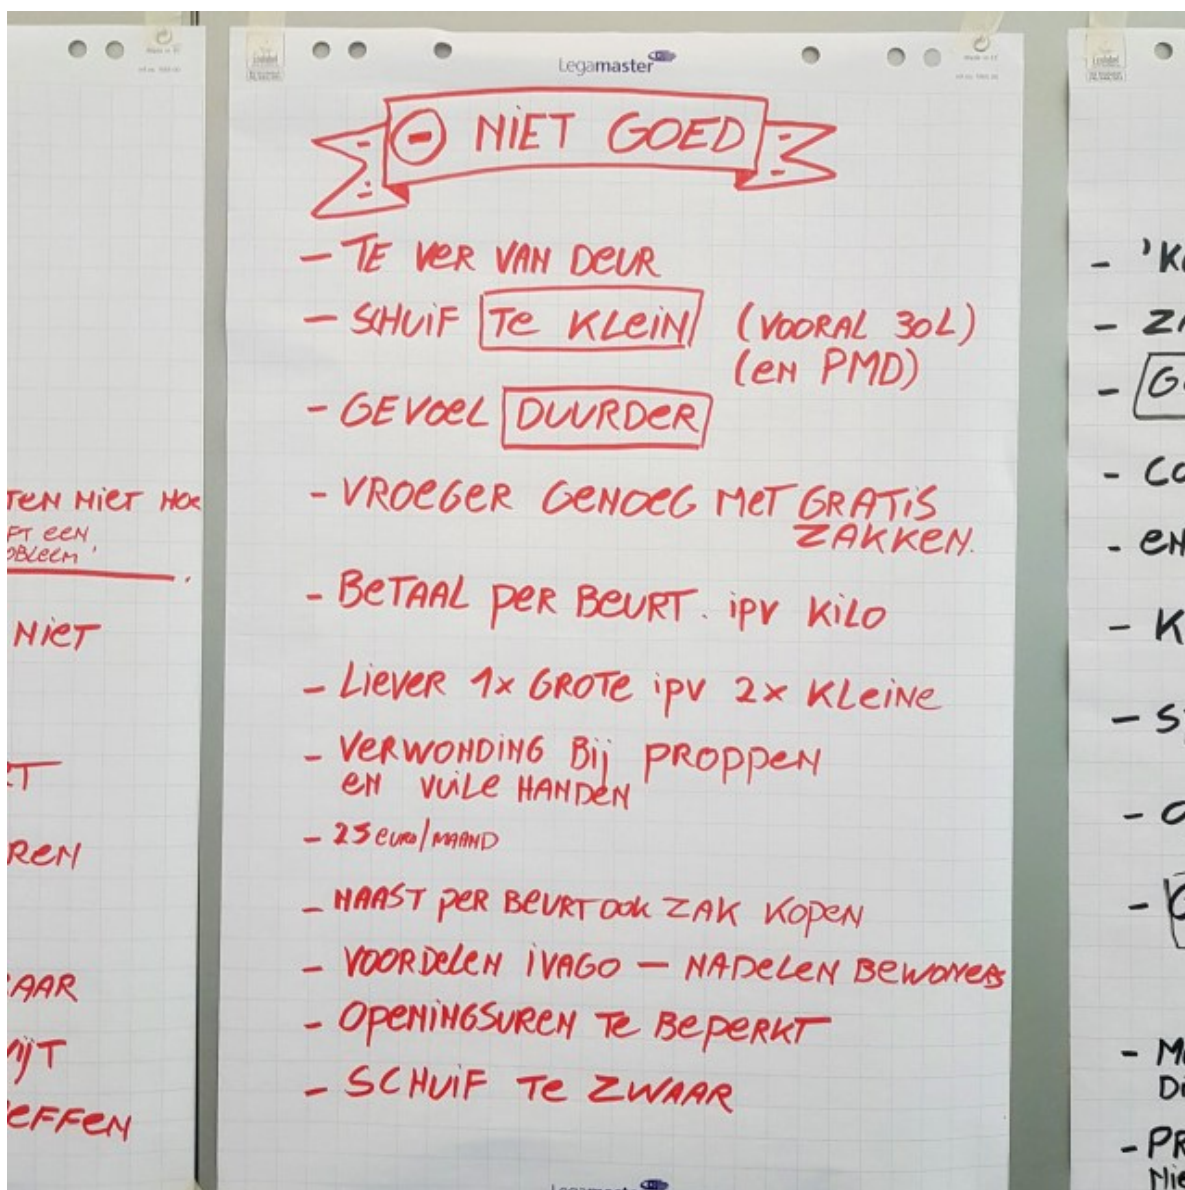 Legamaster
NIET GOED
- TE VER VAN DEUR
- SCHUIF TE KLEIN (VOORAL 30L)
(EN PMD)
- GEVOEL DUURDER
- VROEGER GENOEG MET GRATIS
ZAKKEN.
- BETAAL PER BEURT. ipv KILO
- LIEVER 1x GROTE ipv 2x KLEINE
- VERWONDING BIJ PROPPEN
EN VUILE HANDEN
- 25 EURO/MAAND
- NAAST PER BEURT OOK ZAK KOPEN
- VOORDELEN IVAGO - NADELEN BEWONERS
- OPENINGSUREN TE BEPERKT
- SCHUIF TE ZWAAR
Legamaster
TEN NIET HOE
FT EEN
OBLEEM'
NIET
RT
REN
AAR
IJT
EFFEN
- 'K
- Z
- G
- CO
- EN
- K
- S
- O
- M
Di
- PR
Nie